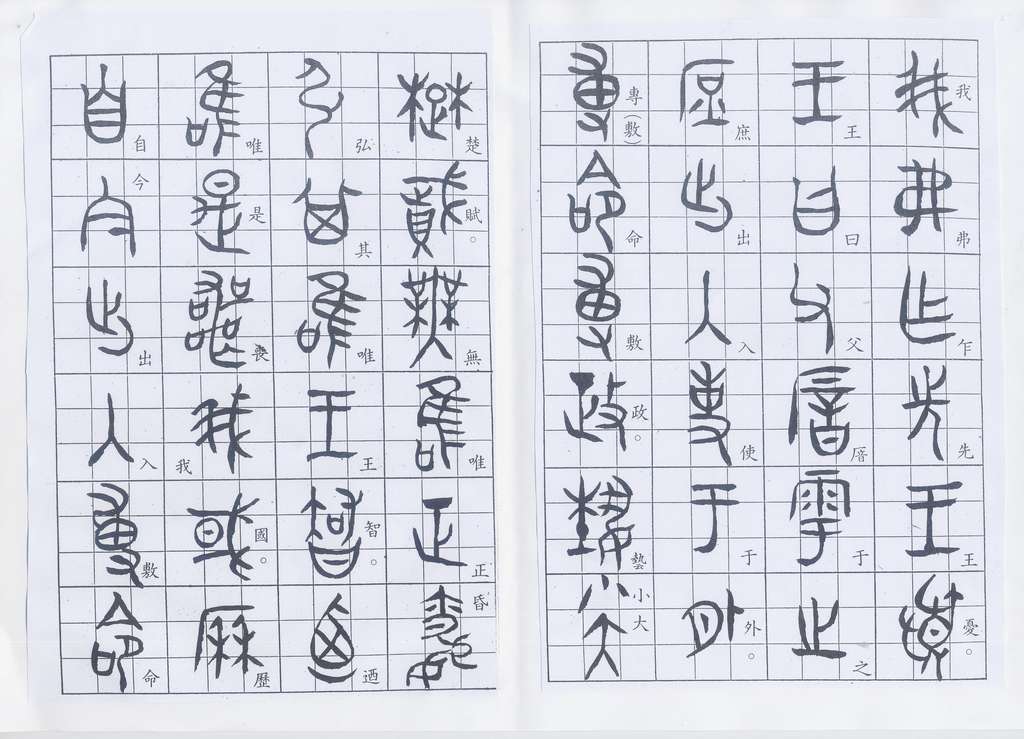 我弗乍先王憂。
王曰父厝于之
庶出入使于外。
專(敷)命敷政。藝小大
楚賦。無唯正昏
弘其唯王智。迺
唯是喪我國。歷
自今出入敷命